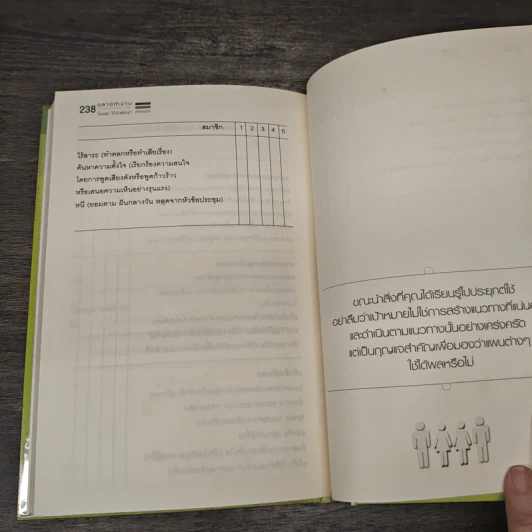 238 ฉลาดทำงาน
Smart Working
สมาชิก 1 2 3 4 5
ไร้สาระ (ทำตลกหรือทำเสียเรื่อง)
ค้นหาความตั้งใจ (เรียกร้องความสนใจ
โดยการพูดเสียงดังหรือพูดก้าวร้าว
หรือเสนอความเห็นอย่างรุนแรง)
หนี (ยอมตาม ฝันกลางวัน หลุดจากหัวข้อประชุม)
ขณะนำสิ่งที่คุณได้เรียนรู้ไปประยุกต์ใช้
อย่าลืมว่าเป้าหมายไม่ใช่การสร้างแนวทางที่แน่น
และดำเนินตามแนวทางนั้นอย่างเคร่งครัด
แต่เป็นกุญแจสำคัญเพื่อมองว่าแผนต่างๆ
ใช้ได้ผลหรือไม่